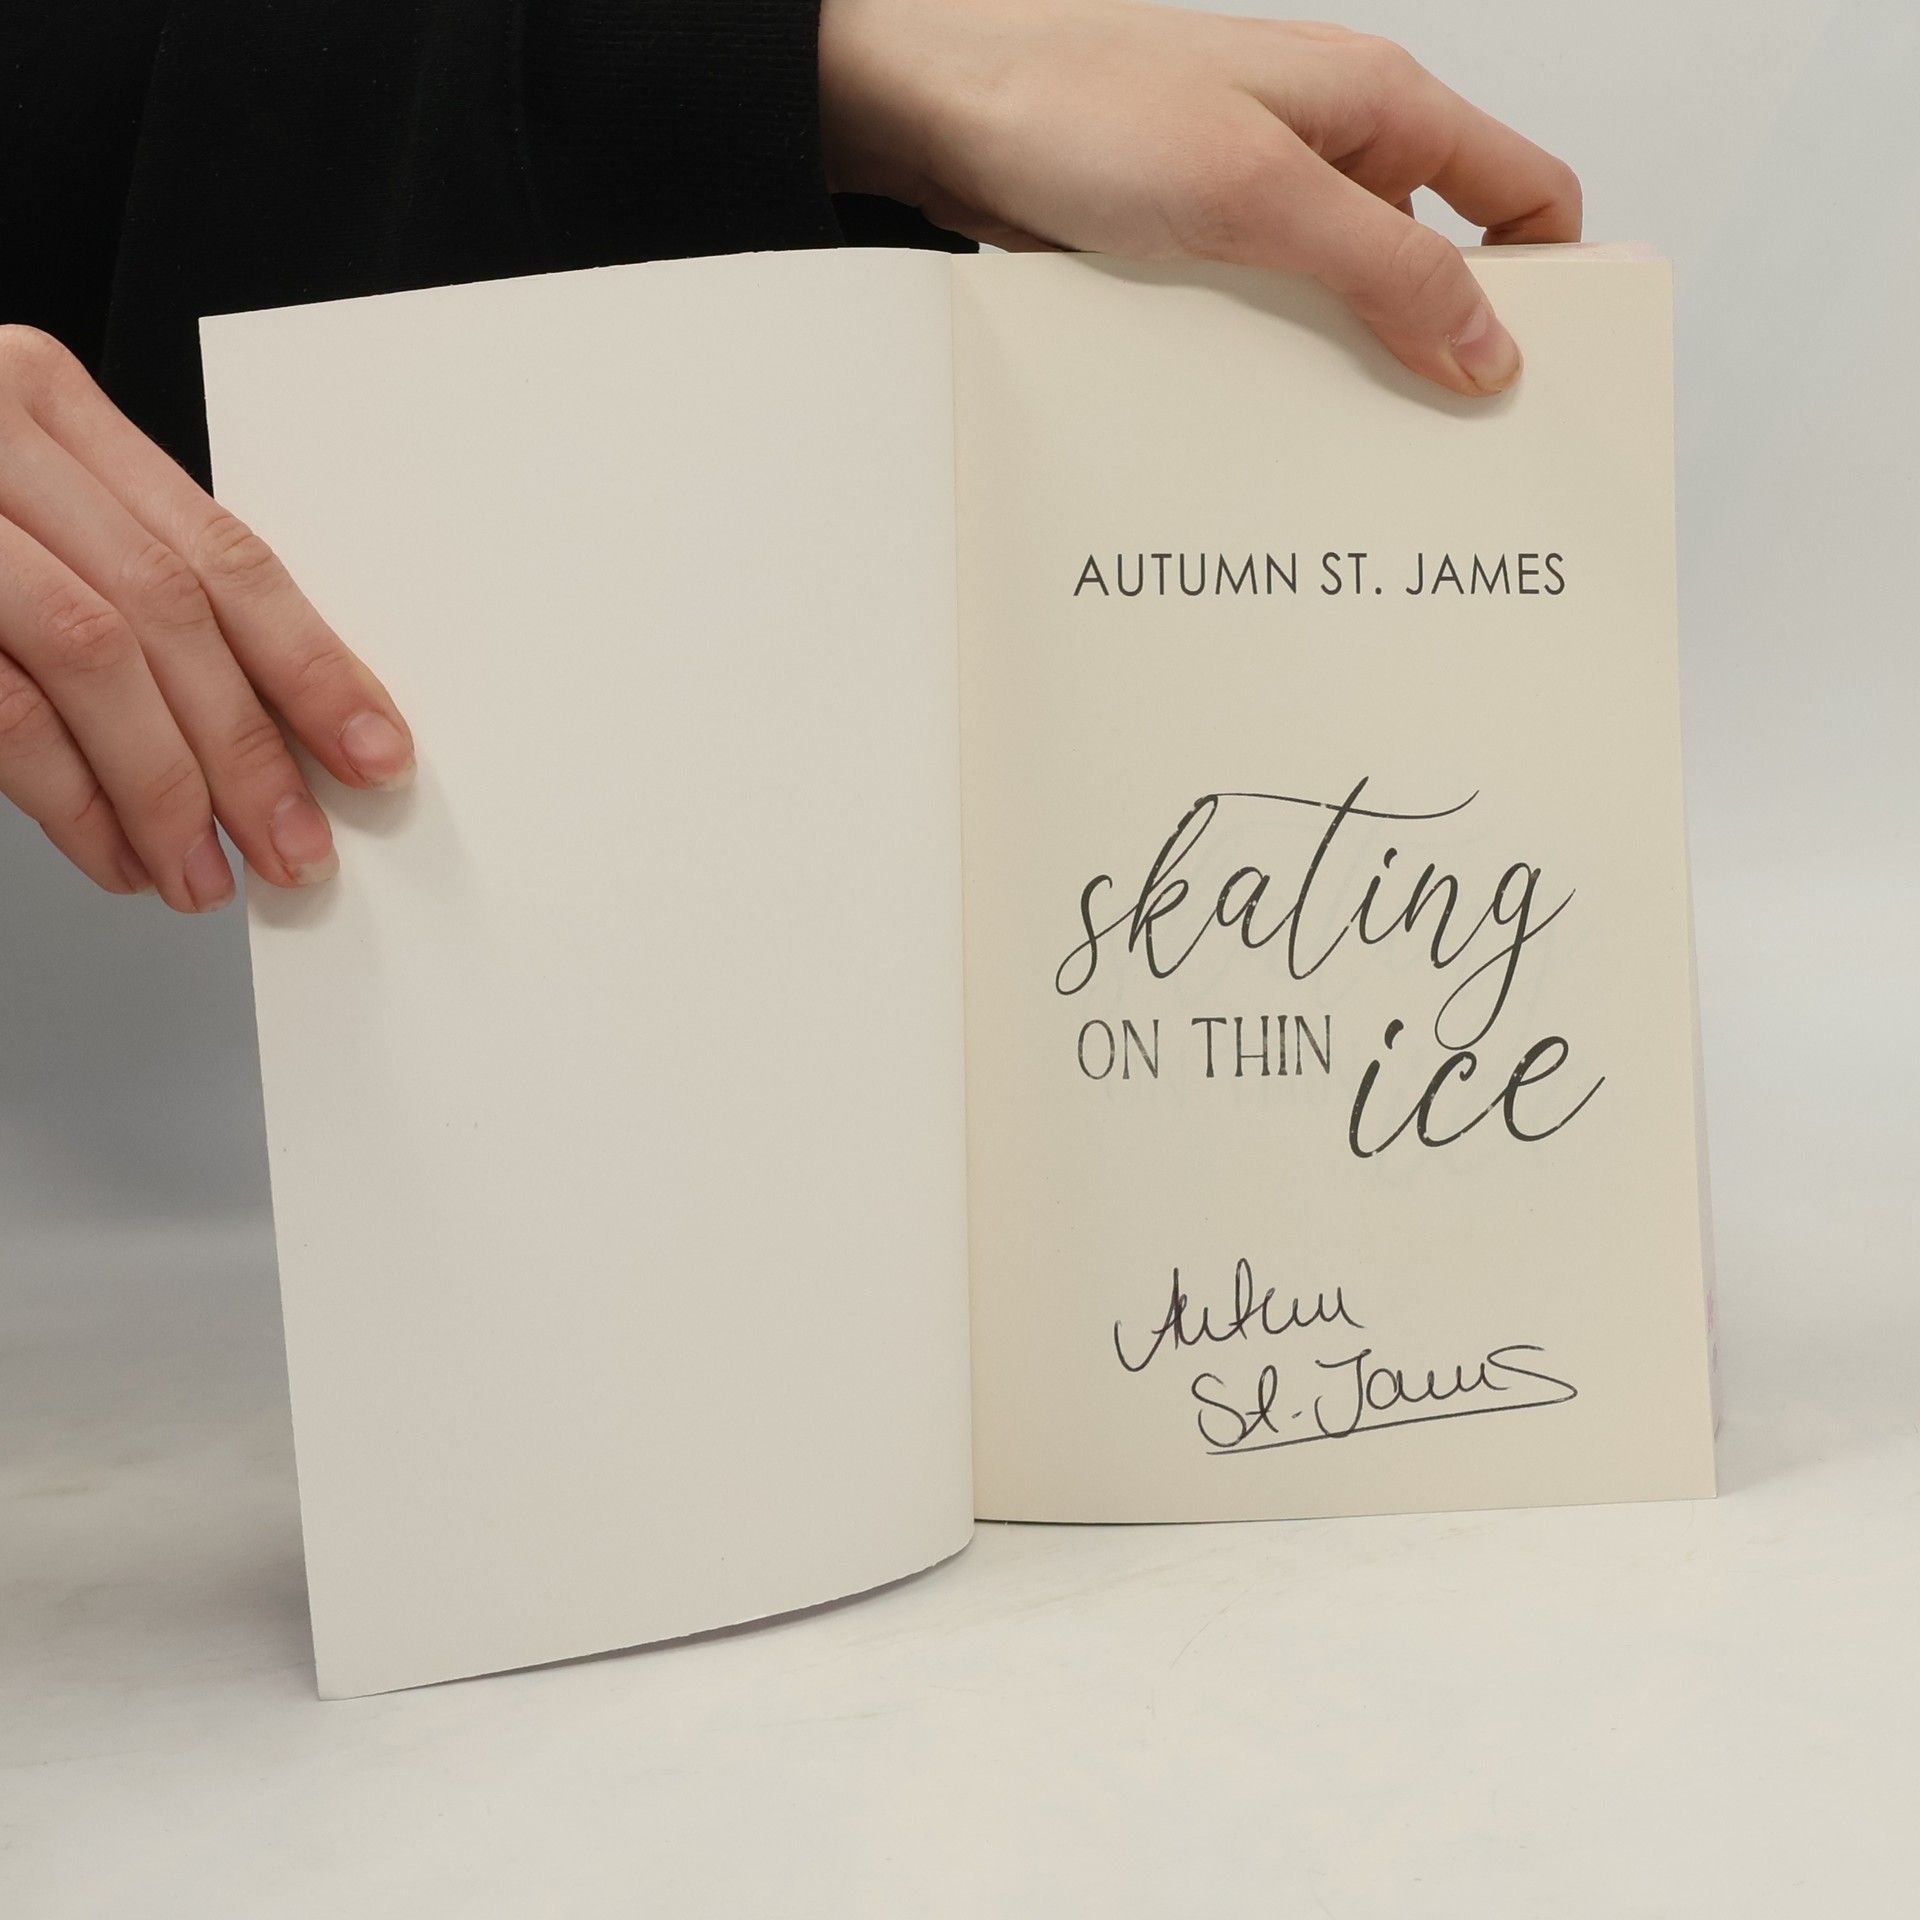 AUTUMN ST. JAMES
skating
ON THIN ice
Autumn
St. James